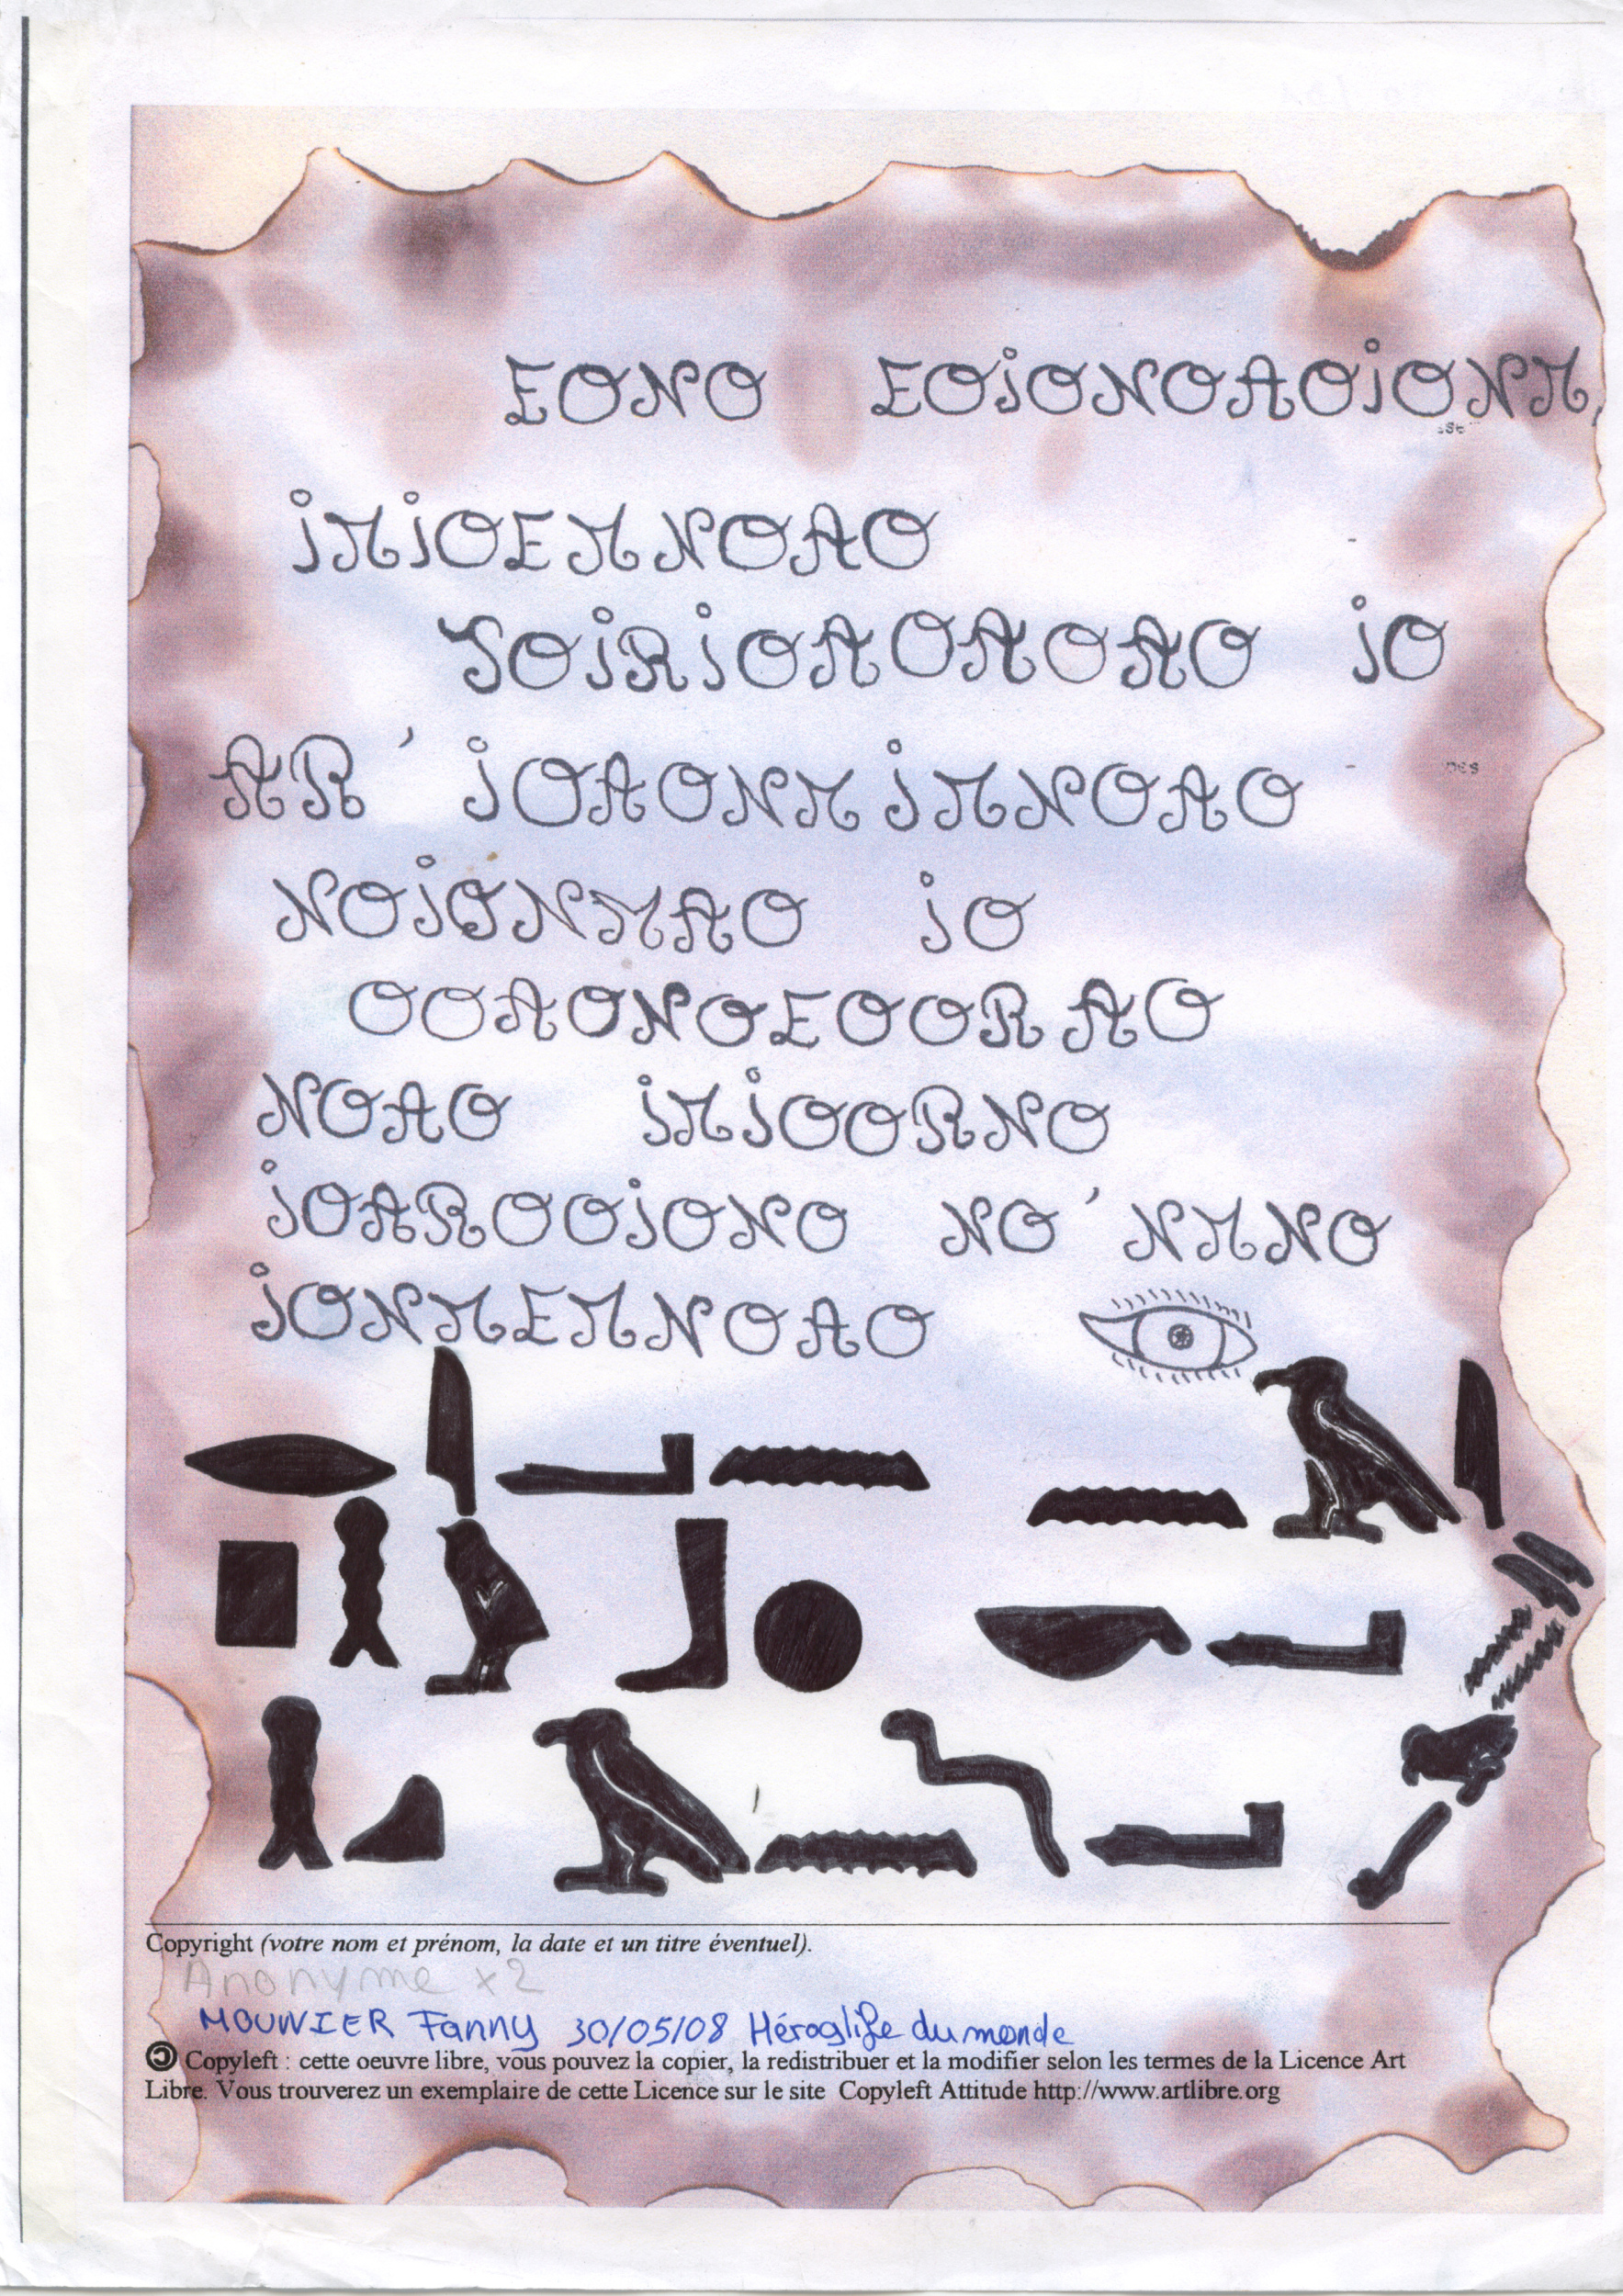 EONO EOiONOAOiONM
iMiOEMNOAO
SOiRiOAOAOAO iO
AR ' iOAONMiMNOAO
NOiONMAO iO
OOAONOEOORAO
NOAO iMiOORNO
iOAROOiONO NO'NMNO
iONMEMNOAO
Copyright (votre nom et prénom, la date et un titre éventuel).
Anonyme x2
MOUNIER Fanny 30/05/08 Héroglife du monde
Copyleft : cette oeuvre libre, vous pouvez la copier, la redistribuer et la modifier selon les termes de la Licence Art
Libre. Vous trouverez un exemplaire de cette Licence sur le site Copyleft Attitude http://www.artlibre.org